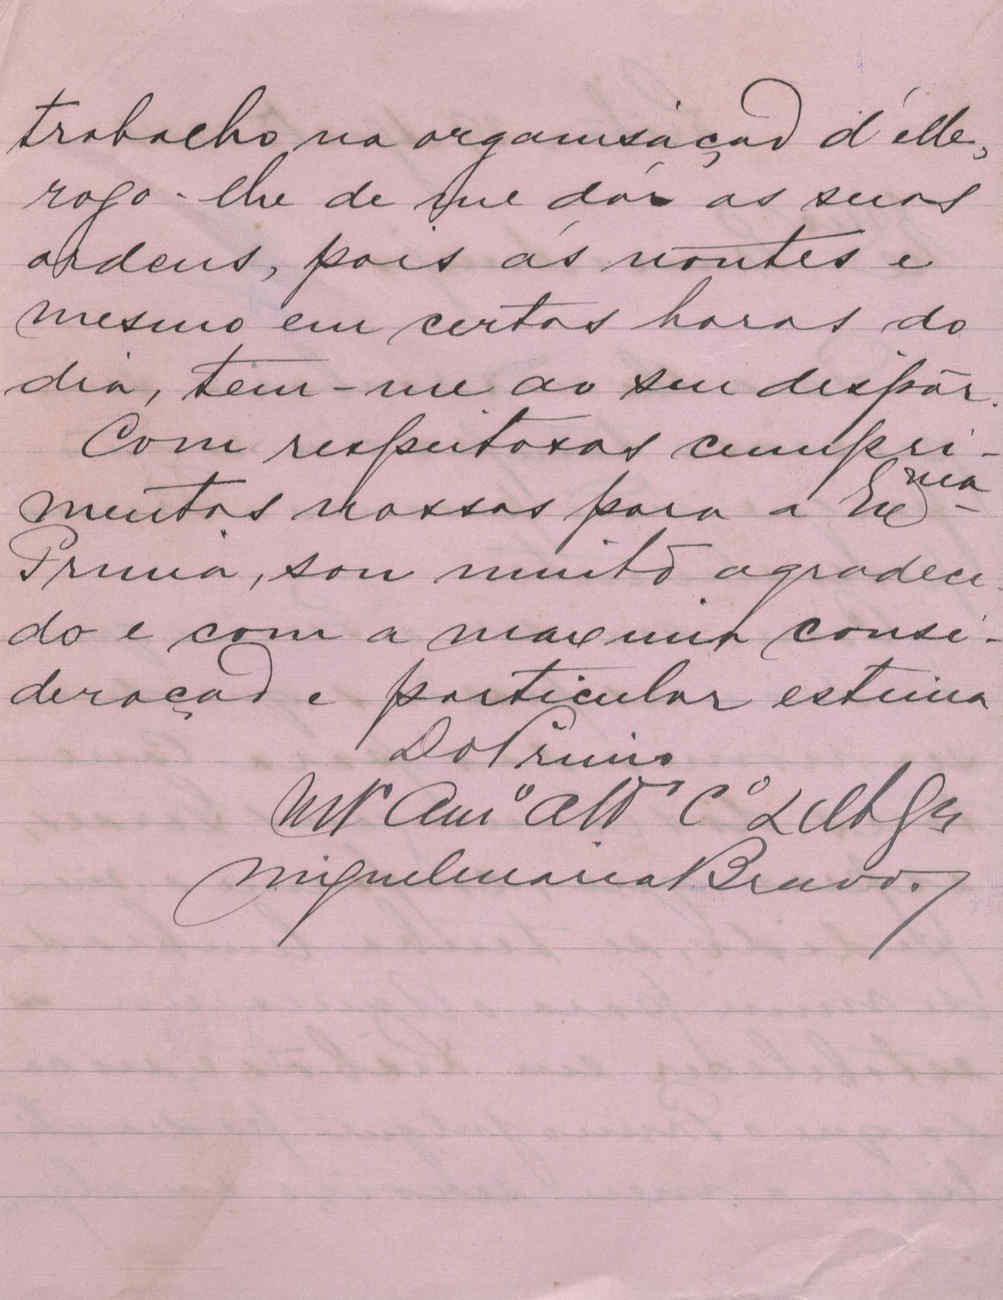 trabalho na organisação d'élle,
rogo-lhe de me dár as suas
ordens, pois ás noutes e
mesmo em certas horas do
dia, tem-me ao seu dispôr.
Com respeitosos cumpri-
mentos nossos para a Exma
Prima, sou muito agradeci-
do e com a maxima consi-
deração e particular estima
Do Primo
Mto Amo Atto Co
Miguel Maria Bravo.